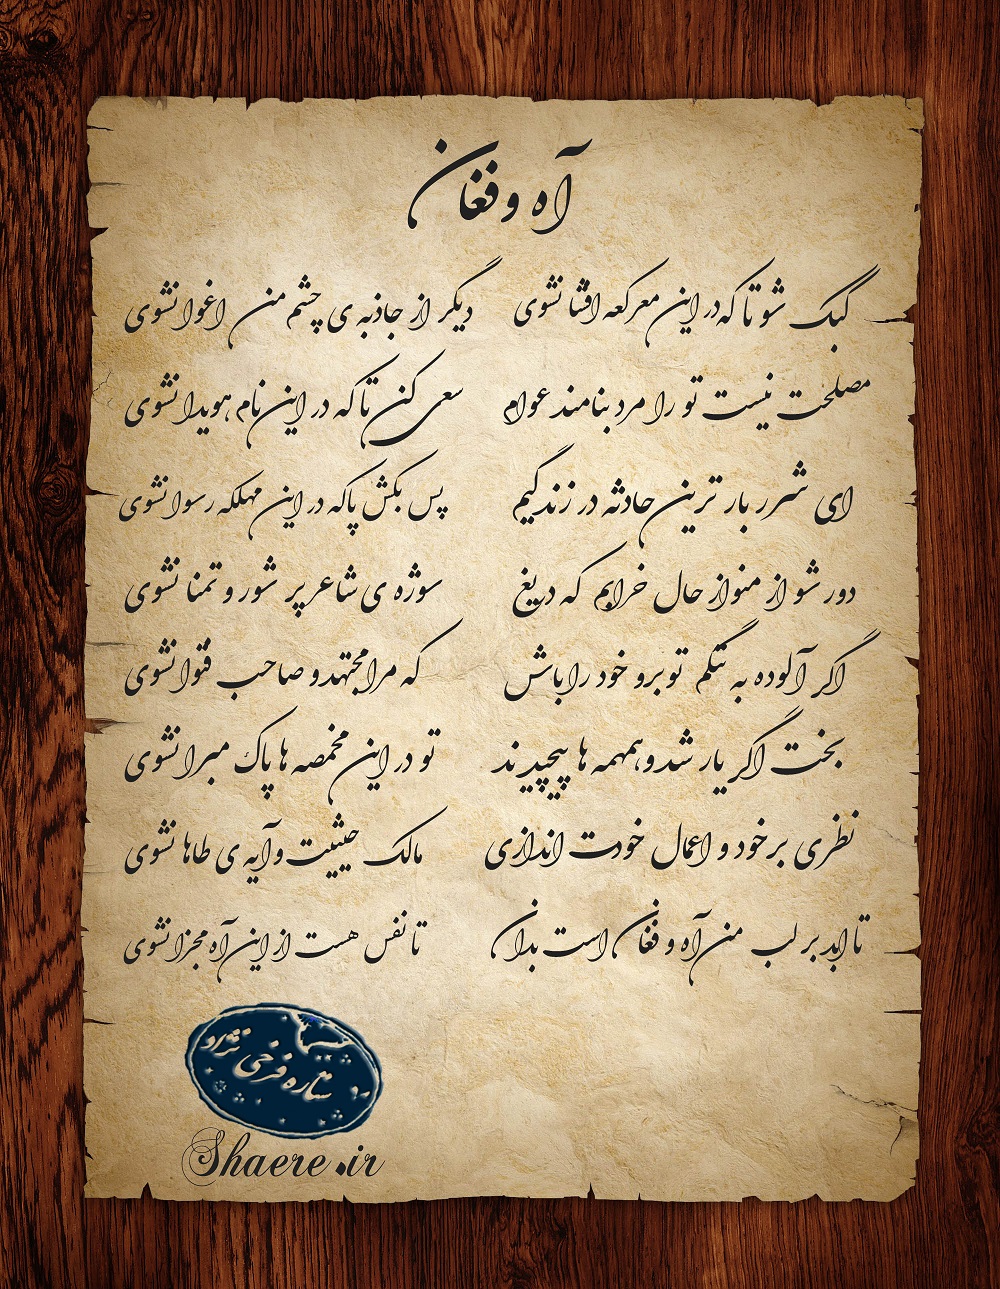 آه و فغان
گبک شو تا که در این معرکعه افشا نشوی دیگر از جاذبه ی چشم من اغوا نشوی
مصلحت نیست تو را مرد بنامند عوام سعی کن تا که در این نام هویدا نشوی
ای شرر بار ترین حادثه در زندگیم پس بکش پا که در این مهلکه رسوا نشوی
دور شو از منو از حال خرابم که دریغ سوژه ی شاعر پر شور و تمنا نشوی
اگر آلوده به ننگم تو برو خود را باش که مرا مجتهد و صاحب فتوا نشوی
بخت اگر یار شد و همهمه ها پیچیدند تو در این مخمصه ها پاک مبرا نشوی
نظری بر خود و اعمال خودت اندازی مالک حیثیت و آیه ی طاها نشوی
تا ابد بر لب من آه و فغان است بدان تا نفس هست از این آه مجزا نشوی
ستاره فرخی نژاد
Shaere.ir